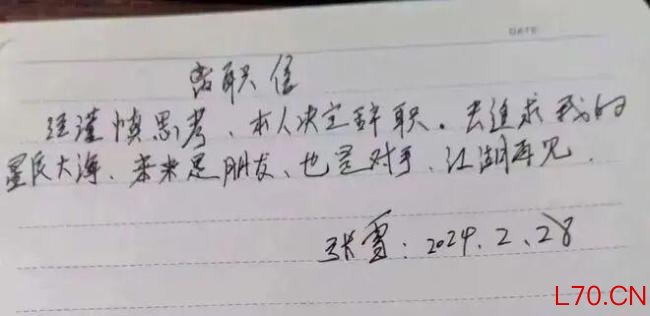 DATE
离职信
经谨慎思考、本人决定辞职。去追求我的
星辰大海、未来是朋友、也是对手、江湖再见.
张雪:2024.2.28
L70.CN